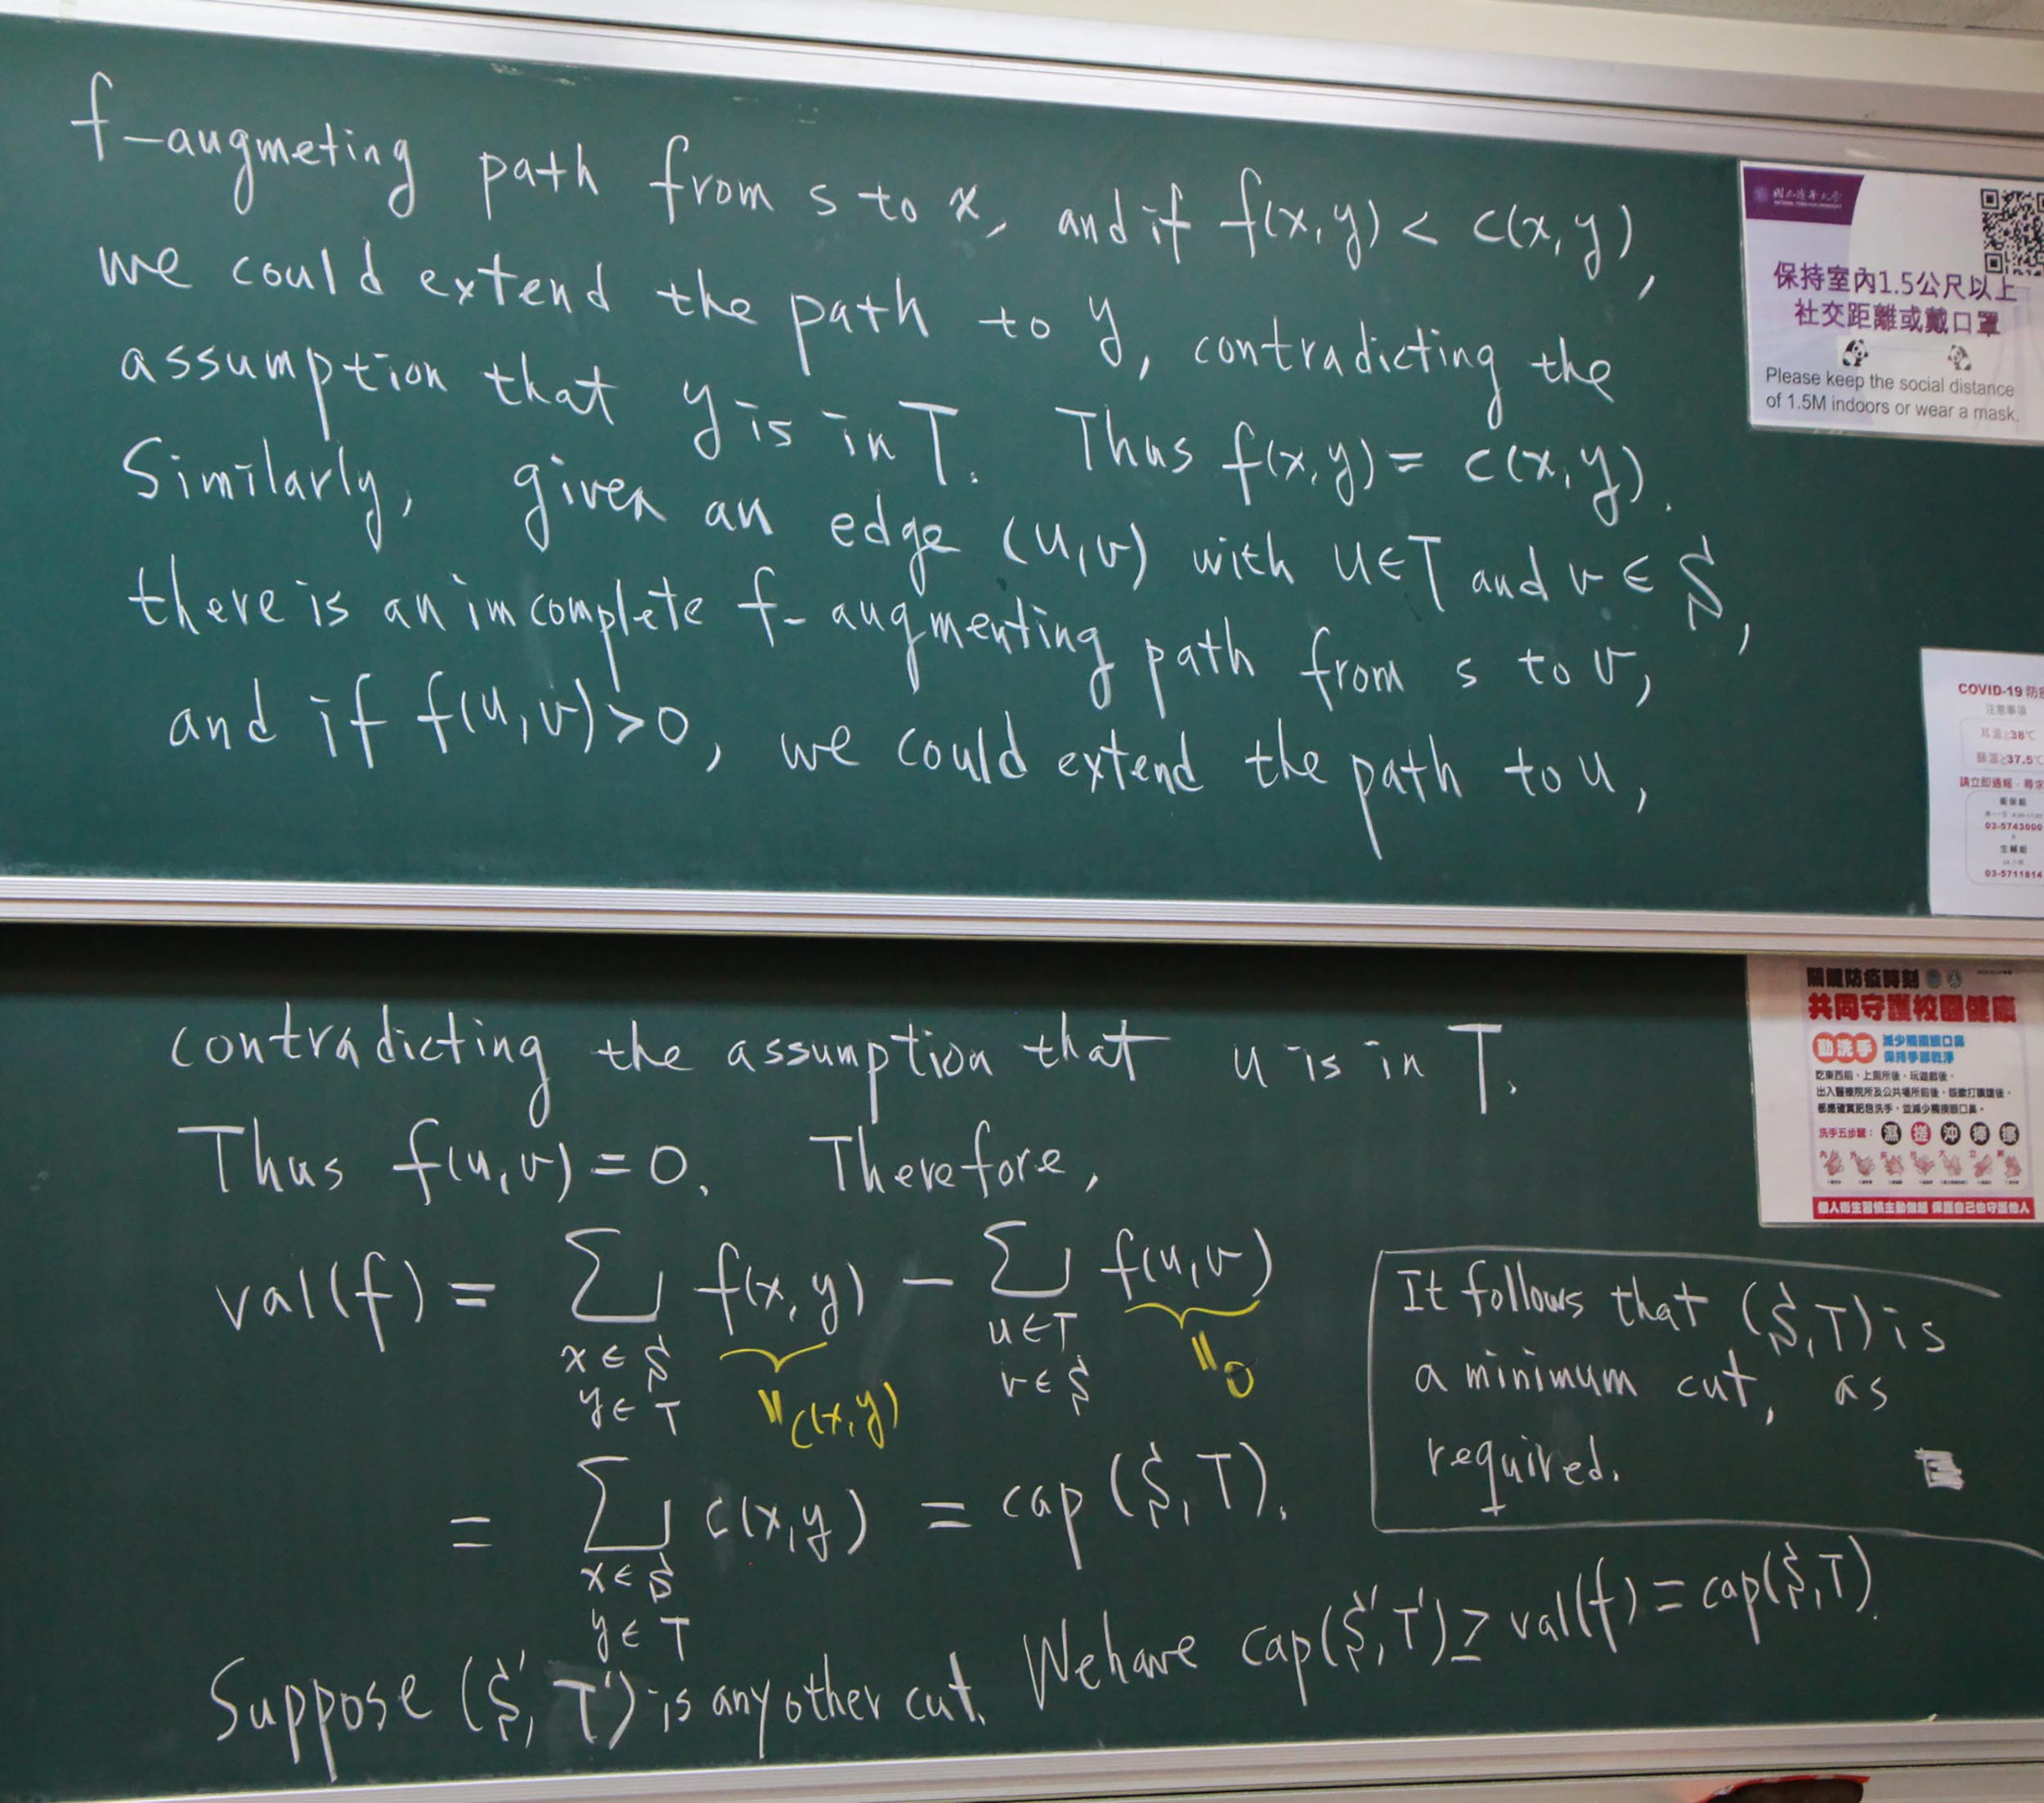 f-augmeting path from s to x, and if f(x,y) < c(x,y),
we could extend the path to y, contradicting the
assumption that y is in T. Thus f(x,y) = c(x,y).
Similarly, given an edge (u,v) with u∈T and v∈S,
there is an imcomplete f-augmenting path from s to v,
and if f(u,v)>0, we could extend the path to u,
contradicting the assumption that u is in T.
Thus f(u,v)=0. Therefore,
val(f) = ∑ f(x,y) − ∑ f(u,v)
x∈S u∈T
y∈T v∈S
" c(x,y) " 0
= ∑ c(x,y) = cap(S,T).
x∈S
y∈T
It follows that (S,T) is
a minimum cut, as
required.
Suppose (S',T') is any other cut. We have cap(S',T') ≥ val(f) = cap(S,T).
保持室內1.5公尺以上
社交距離或戴口罩
Please keep the social distance
of 1.5M indoors or wear a mask.
COVID-19 防
注意事項
耳溫≥38℃
額溫≥37.5℃
請立即通報
03-5743000
03-5711814
關鍵防疫時刻
共同守護校園健康
勤洗手
減少觸摸眼口鼻
保持手部乾淨
吃東西前、上廁所後、玩遊戲後、
洗手五步驟: 濕 搓 沖 捧 擦
個人衛生習慣主動做起 保護自己也守護他人